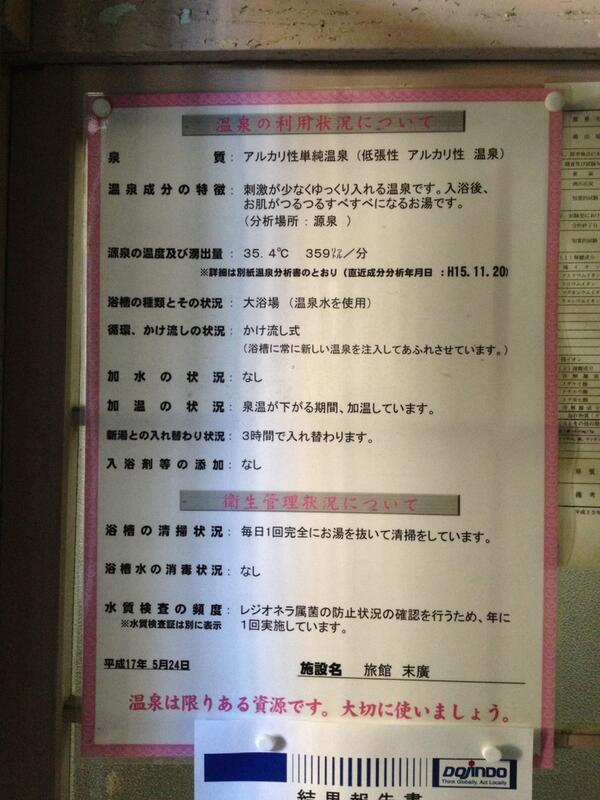 温泉の利用状況について
泉質：アルカリ性単純温泉（低張性 アルカリ性 温泉）
温泉成分の特徴：刺激が少なくゆっくり入れる温泉です。入浴後、
お肌がつるつるすべすべになるお湯です。
（分析場所：源泉 ）
源泉の温度及び湧出量：35.4℃ 359㍑／分
※詳細は別紙温泉分析書のとおり（直近成分分析年月日 ：H15.11.20）
浴槽の種類とその状況：大浴場（温泉水を使用）
循環、かけ流しの状況：かけ流し式
（浴槽に常に新しい温泉を注入してあふれさせています。）
加水の状況：なし
加温の状況：泉温が下がる期間、加温しています。
新湯との入れ替わり状況：3時間で入れ替わります。
入浴剤等の添加：なし
衛生管理状況について
浴槽の清掃状況：毎日1回完全にお湯を抜いて清掃をしています。
浴槽水の消毒状況：なし
水質検査の頻度：レジオネラ属菌の防止状況の確認を行うため、年に
※水質検査証は別に表示 1回実施しています。
平成17年 5月24日 施設名 旅館 末廣
温泉は限りある資源です。大切に使いましょう。
DOJINDO
Think Globally, Act Locally
結果報告書